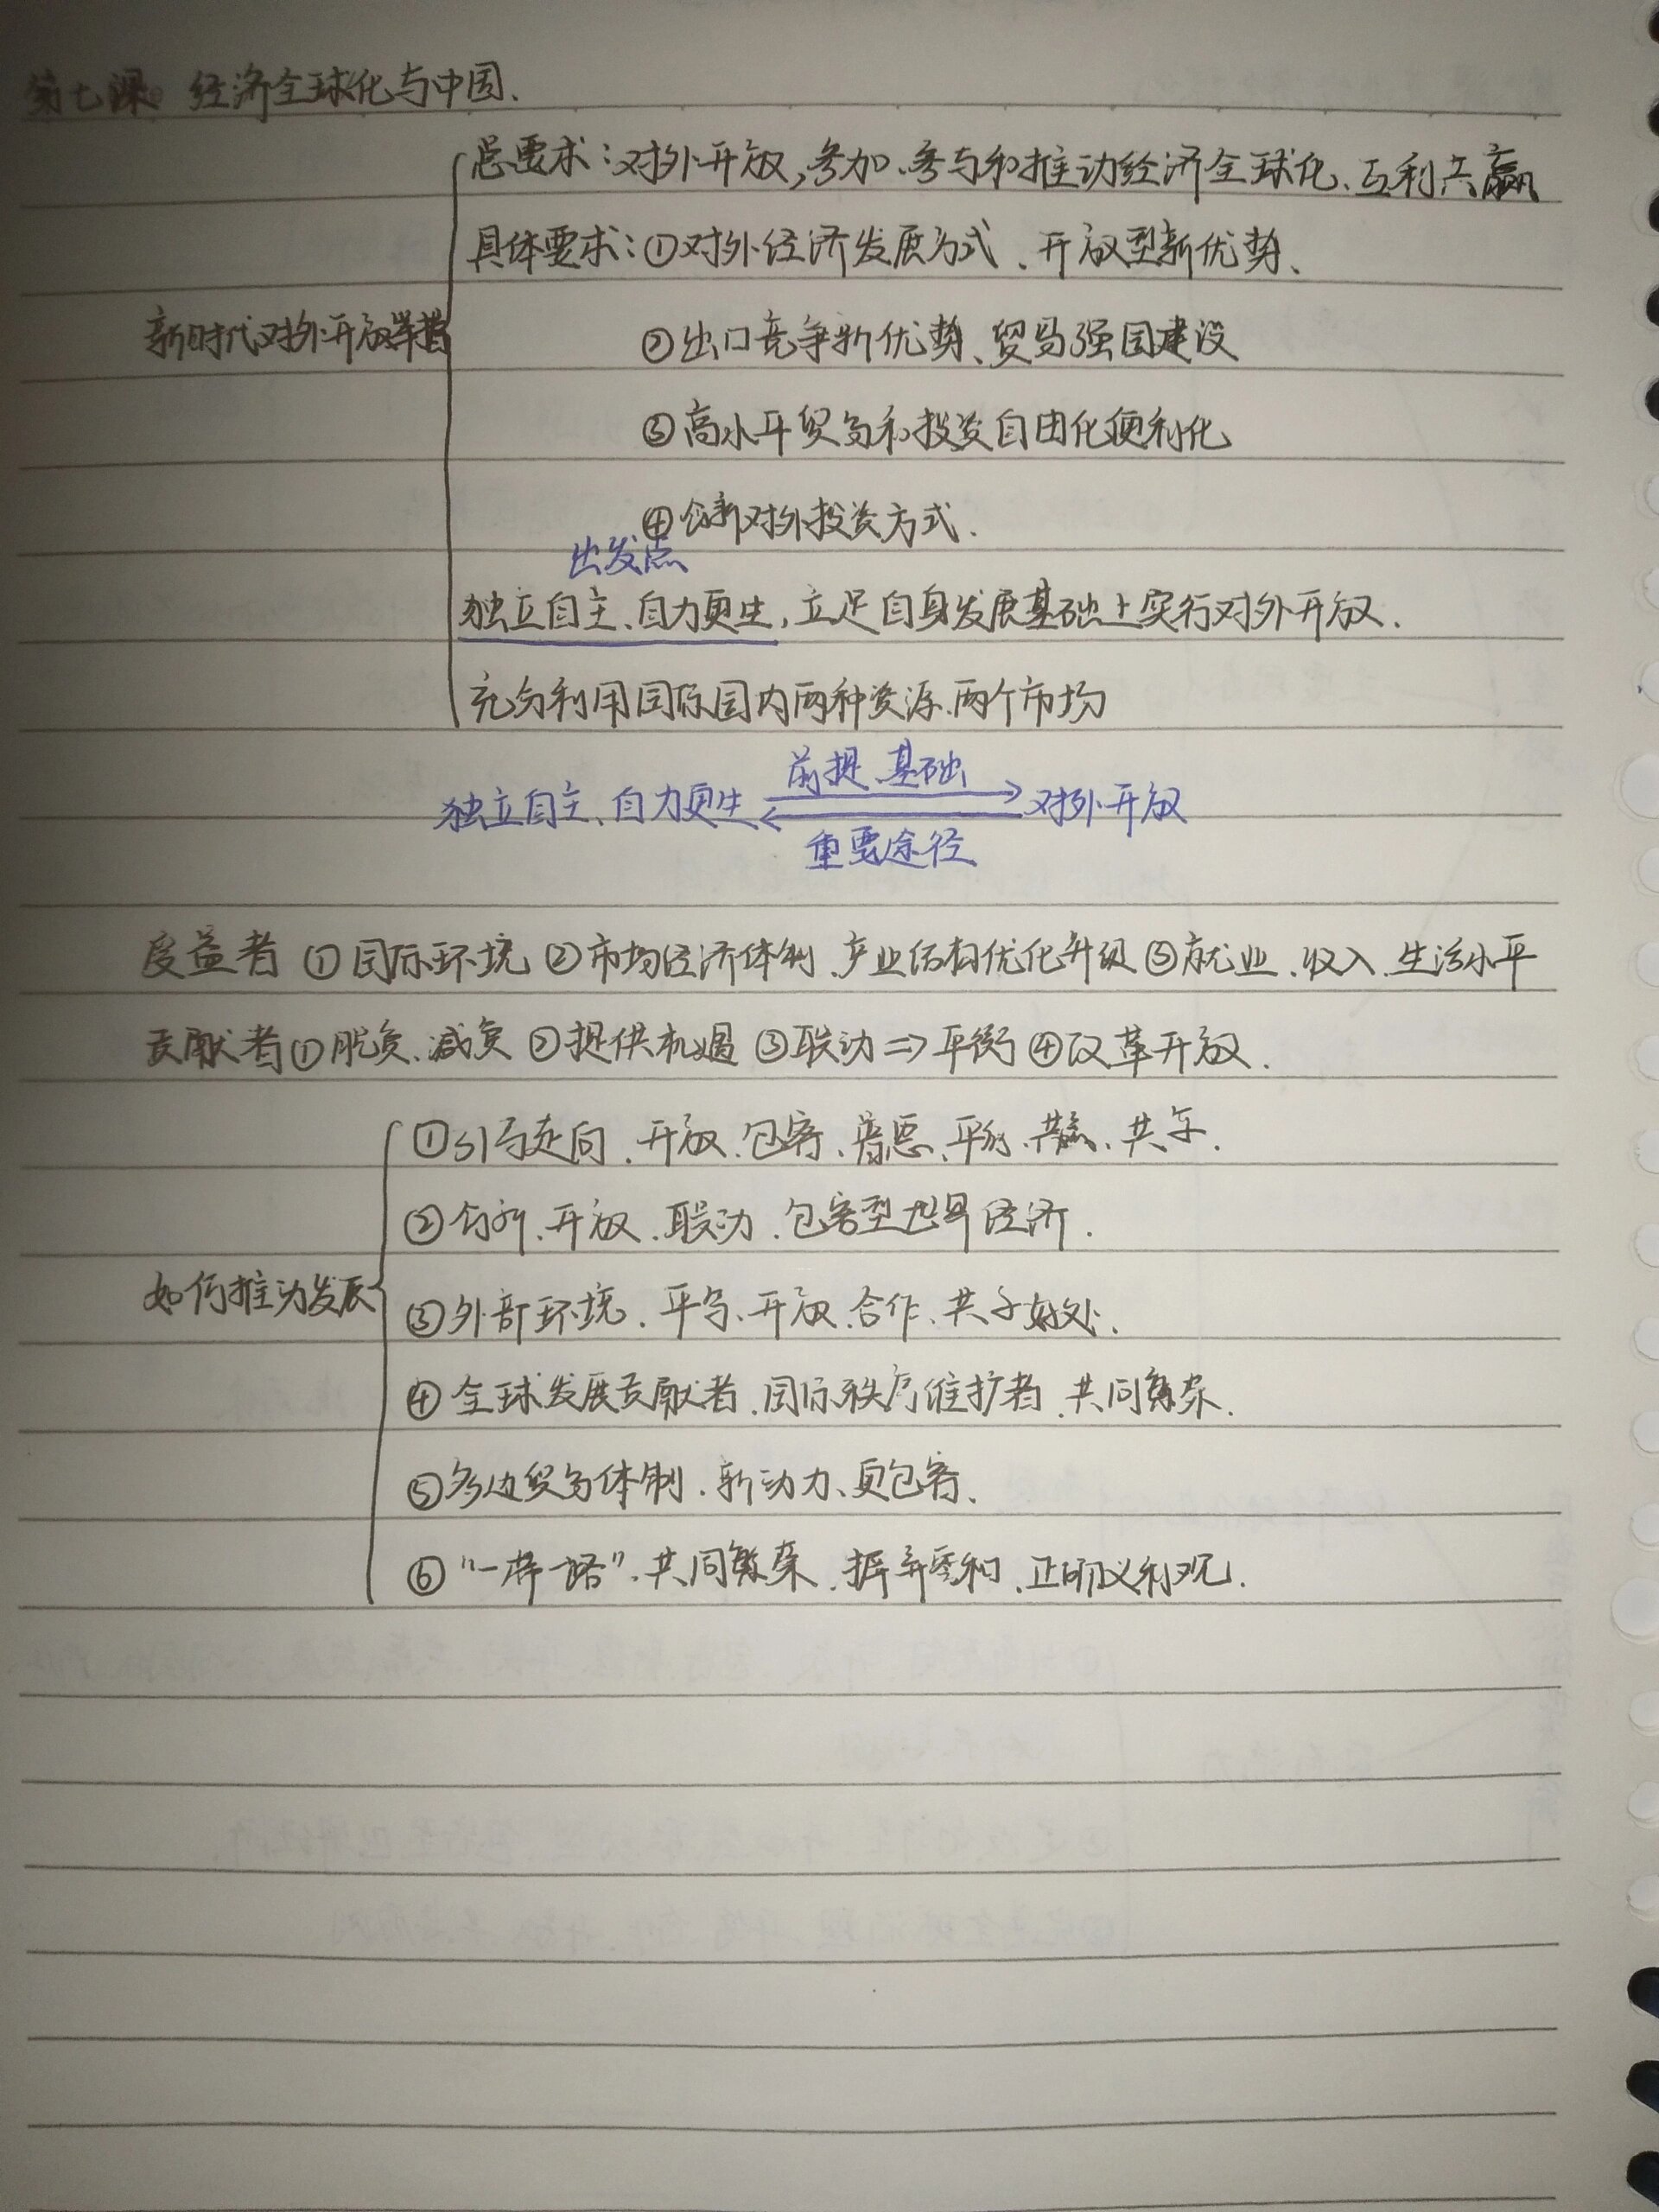 第七课 经济全球化与中国.
总要求：对外开放,参加、参与和推动经济全球化、互利共赢
具体要求：①对外经济发展方式、开放型新优势、
新时代对外开放举措
②出口竞争新优势、贸易强国建设
③高水平贸易和投资自由化便利化
④创新对外投资方式.
出发点
独立自主、自力更生,立足自身发展基础上实行对外开放.
充分利用国际国内两种资源、两个市场
前提、基础
独立自主、自力更生 ⇌ 对外开放
重要途径
受益者 ①国际环境 ②市场经济体制、产业结构优化升级 ③就业、收入、生活水平
贡献者 ①脱贫、减贫 ②提供机遇 ③联动⇒平衡 ④改革开放.
①引导走向、开放、包容、普惠、平衡、共赢、共享.
②创新、开放、联动、包容型世界经济.
如何推动发展
③外部环境、平等、开放、合作、共享好处.
④全球发展贡献者、国际秩序维护者、共同繁荣.
⑤多边贸易体制、新动力、更包容、
⑥“一带一路”、共同繁荣、摒弃零和、正确义利观.